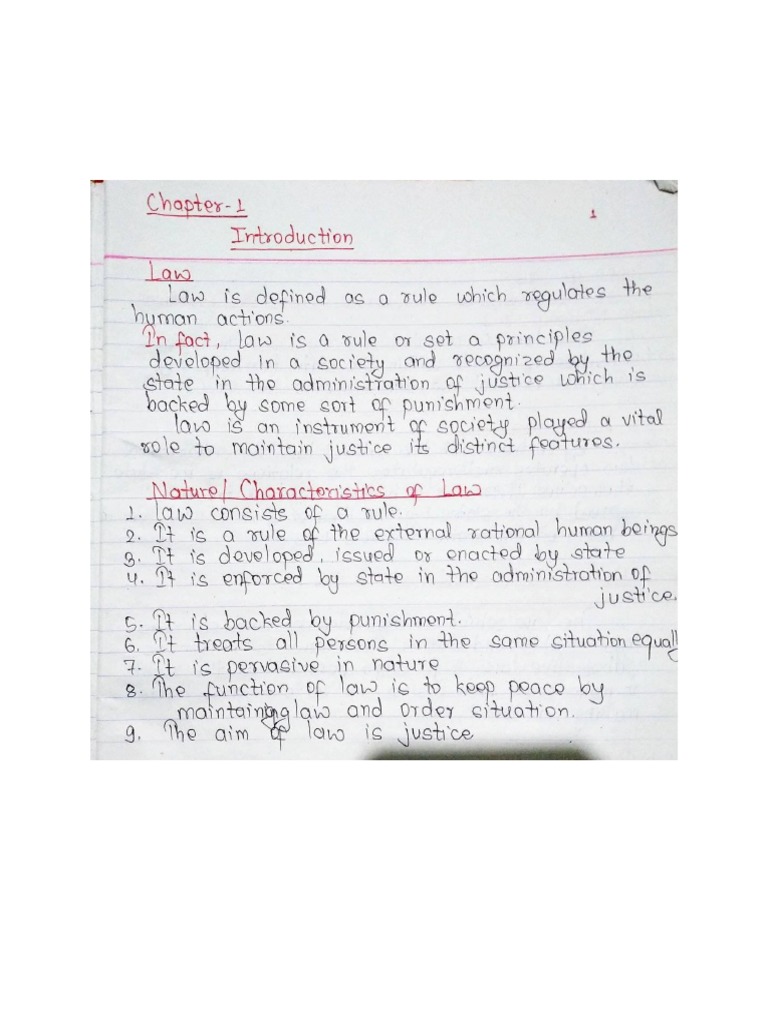 Chapter-1
1
Introduction
Law
Law is defined as a rule which regulates the
human actions.
In fact, law is a rule or set a principles
developed in a society and recognized by the
state in the administration of justice which is
backed by some sort of punishment.
law is an instrument of society played a vital
role to maintain justice its distinct features.
Nature/ Characteristics of Law
1. law consists of a rule.
2. It is a rule of the external rational human beings
3. It is developed, issued or enacted by state
4. It is enforced by state in the administration of
justice.
5. It is backed by punishment.
6. It treats all persons in the same situation equally
7. It is pervasive in nature
8. The function of law is to keep peace by
maintaining law and order situation.
9. The aim of law is justice